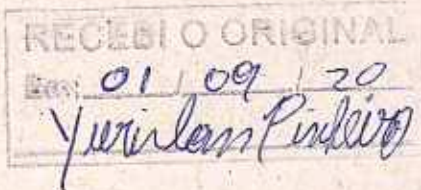 RECEBI O ORIGINAL
Em: 01 / 09 / 20
Pinheiro